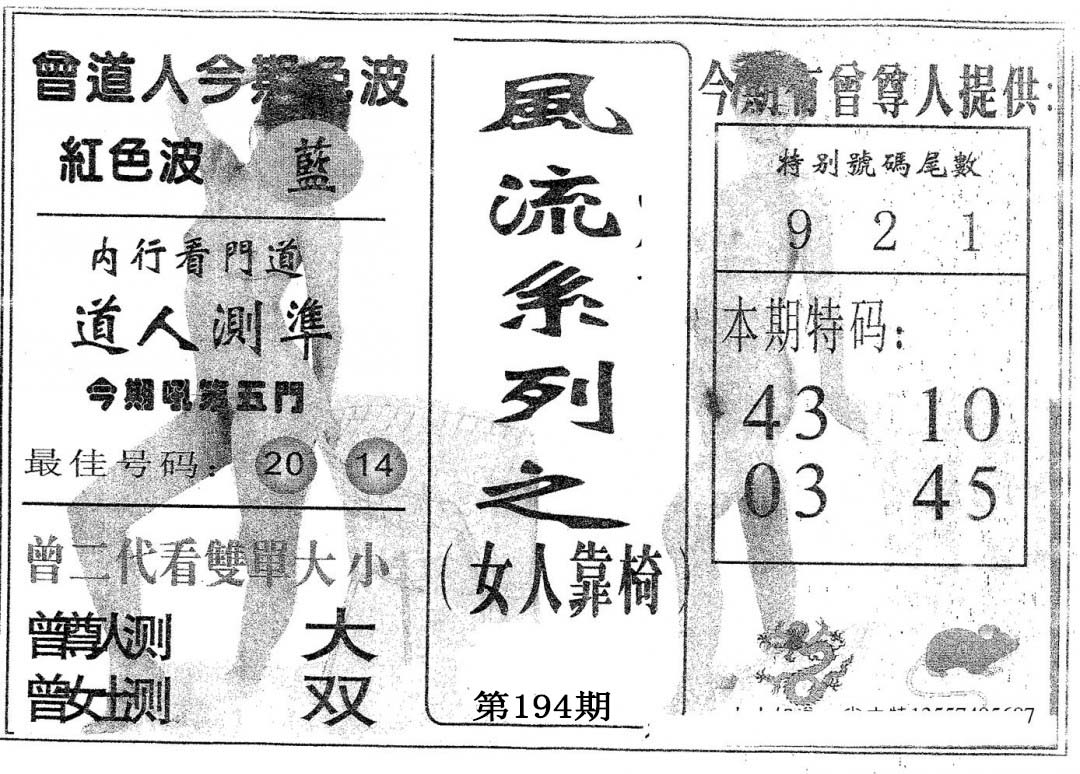 曾道人今期色波
紅色波 藍
内行看門道
道人測準
今期吼第五門
最佳号码: 20 14
曾二代看雙單大小
曾尊人测 大
曾女士测 双
風流系列之
(女人靠椅)
第194期
今期有曾尊人提供:
特别號碼尾數
9 2 1
本期特码:
43 10
03 45